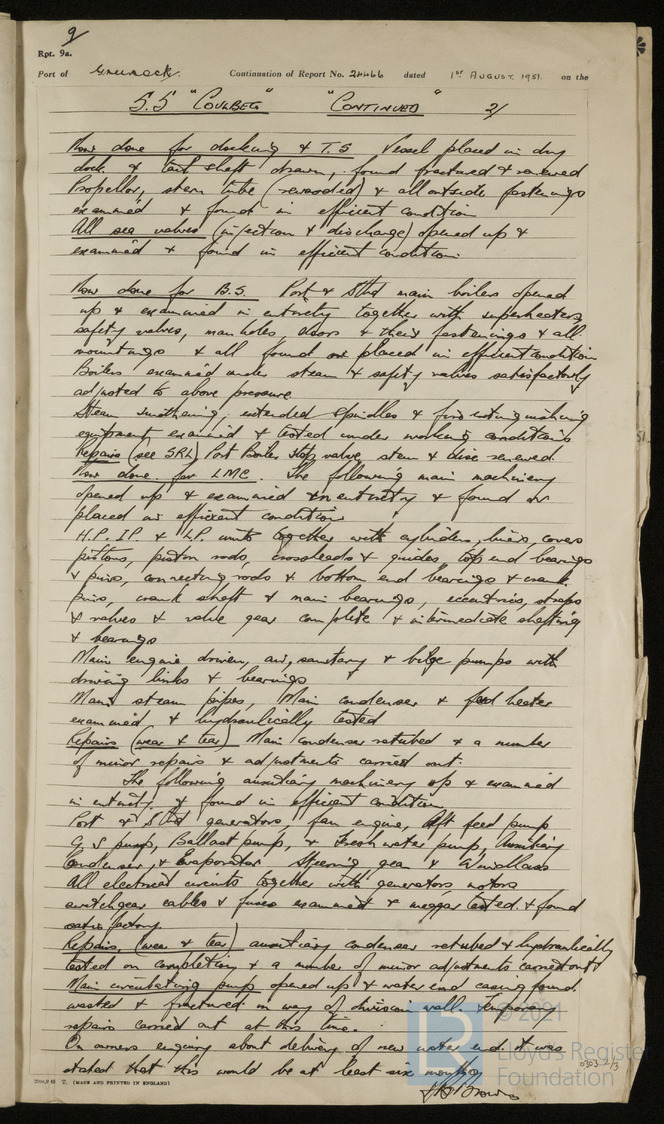 9
Rpt. 9a.
Port of Greenock. Continuation of Report No. 24466 dated 1st AUGUST. 1951. on the
S.S "COULBEG" "CONTINUED" 2/
Now done for docking & T.S Vessel placed in dry
dock & tail shaft drawn, found fractured & renewed
Propellor, stern tube (rewooded) & all outside fastenings
examined & found in efficient condition
All sea valves (injection & discharge) opened up &
examined & found in efficient condition.
Now done for B.S. Port & Stbd main boilers opened
up & examined in entirety together with superheaters,
safety valves, manholes, doors & their fastenings & all
mountings & all found or placed in efficient condition
Boilers examined under steam & safety valves satisfactorily
adjusted to above pressure.
Steam smothering, extended spindles & fire extinguishing
equipment examined & tested under working conditions
Repairs (see SRL) Port Boiler stop valve, stem & disc renewed.
Now done for LMC. The following main machinery
opened up & examined in entirety & found or
placed in efficient condition
H.P. I.P. & L.P. units together with cylinders, liners, covers
pistons, piston rods, crossheads & guides, top end bearings
& pins, connecting rods & bottom end bearings & crank
pins, crank shaft & main bearings, eccentrics, straps
& valves & valve gear complete & intermediate shafting
& bearings
Main engine driven, air, sanitary & bilge pumps with
driving links & bearings
Main steam pipes, Main condenser & feed heater
examined & hydraulically tested
Repairs (wear & tear) Main condenser retubed & a number
of minor repairs & adjustments carried out.
The following auxiliary machinery up & examined
in entirety & found in efficient condition
Port & Stbd generators, fan engine, Aft feed pump
G.S pump, Ballast pump, & Fresh water pump, Auxiliary
Condenser, & Evaporator Steering gear & Windlass
All electrical circuits together with generators, motors
switchgear cables & fuses examined & megger tested & found
satisfactory.
Repairs, (wear & tear) auxiliary condenser retubed & hydraulically
tested on completion & a number of minor adjustments carried out
Main circulating pump opened up & water end casing found
wasted & fractured in way of division wall temporary
repairs carried out at this time.
On owners enquiry about delivery of new water end it was
stated that this would be at least six months
Brown
7500,9 45 T. (MADE AND PRINTED IN ENGLAND)
0303 2/3
© 2021
Lloyd's Register
Foundation